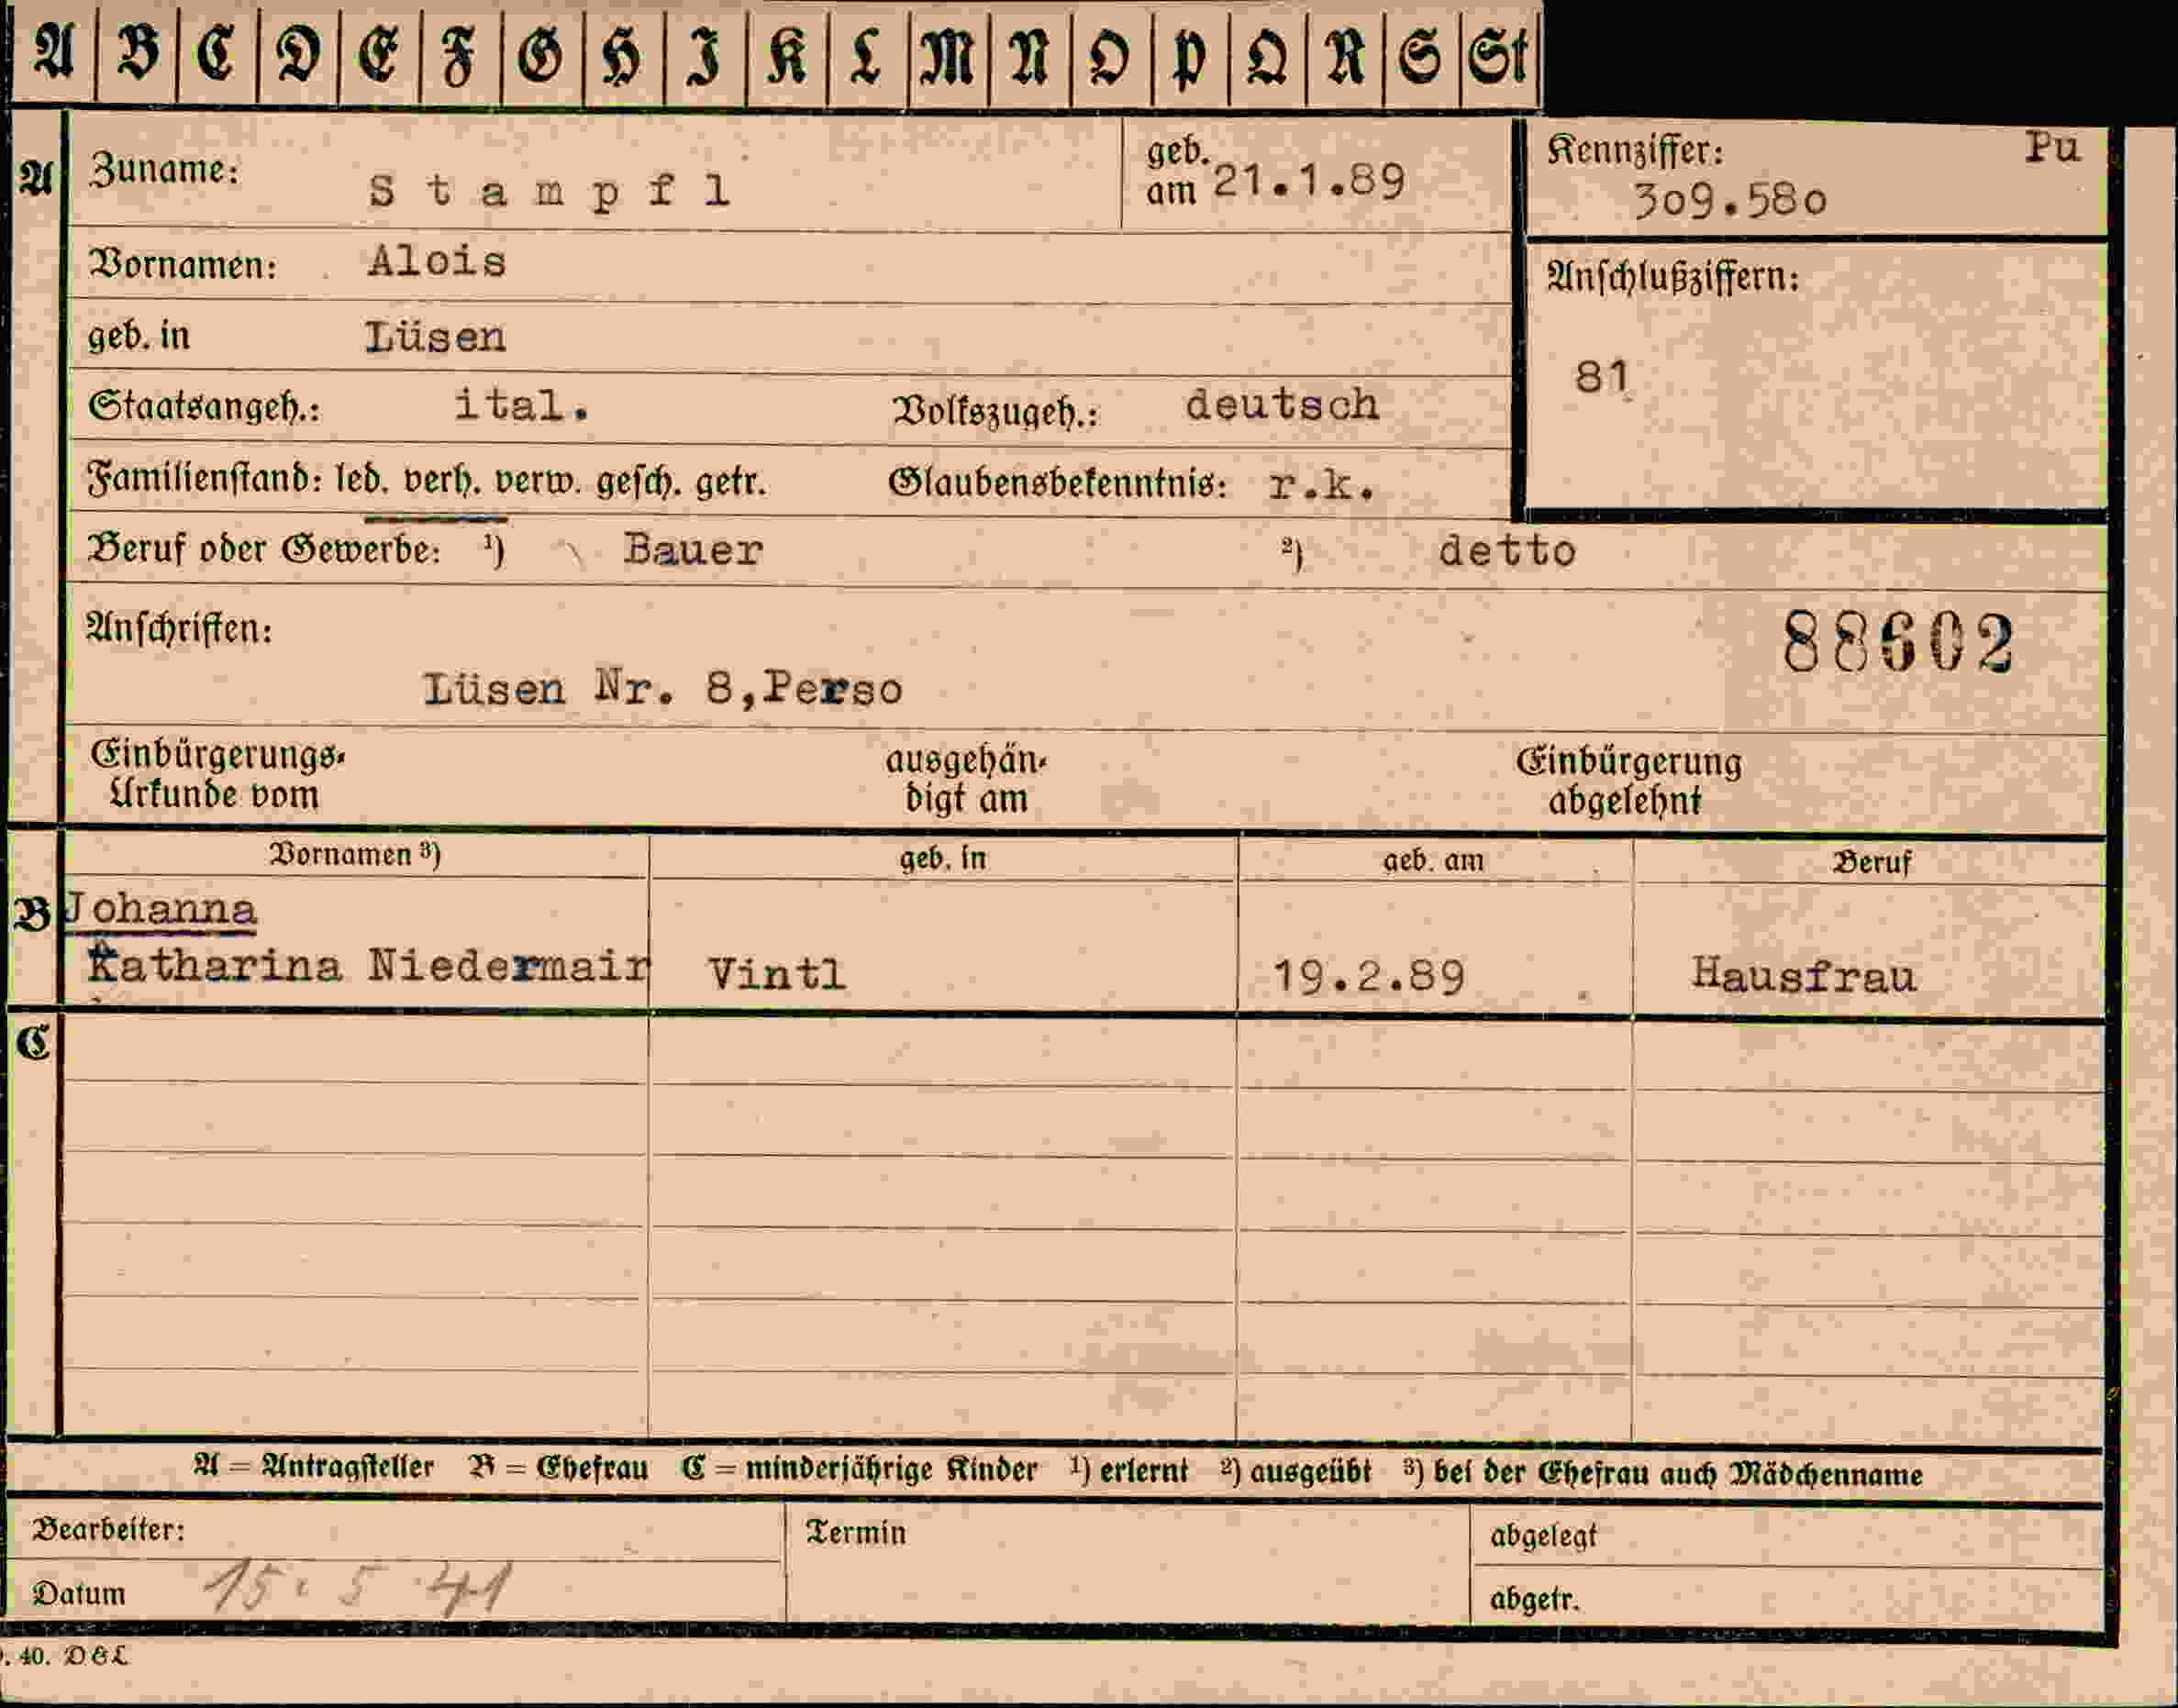 A B C D E F G H I K L M N O P Q R S St
A Zuname: Stampfl geb. am 21.1.89 Kennziffer: Pu
309.580
Vornamen: Alois Anschlußziffern:
geb. in Lüsen
81
Staatsangeh.: ital. Volkszugeh.: deutsch
Familienstand: led. verh. verw. gesch. getr. Glaubensbekenntnis: r.k.
Beruf oder Gewerbe: ¹) Bauer ²) detto
Anschriften: 88602
Lüsen Nr. 8,Perso
Einbürgerungs- ausgehän- Einbürgerung
Urkunde vom digt am abgelehnt
Vornamen ³) geb. in geb. am Beruf
B Johanna
Katharina Niedermair Vintl 19.2.89 Hausfrau
C
A = Antragsteller B = Ehefrau C = minderjährige Kinder ¹) erlernt ²) ausgeübt ³) bei der Ehefrau auch Mädchenname
Bearbeiter: Termin abgelegt
Datum 15. 5 41 abgetr.
. 40. D&L